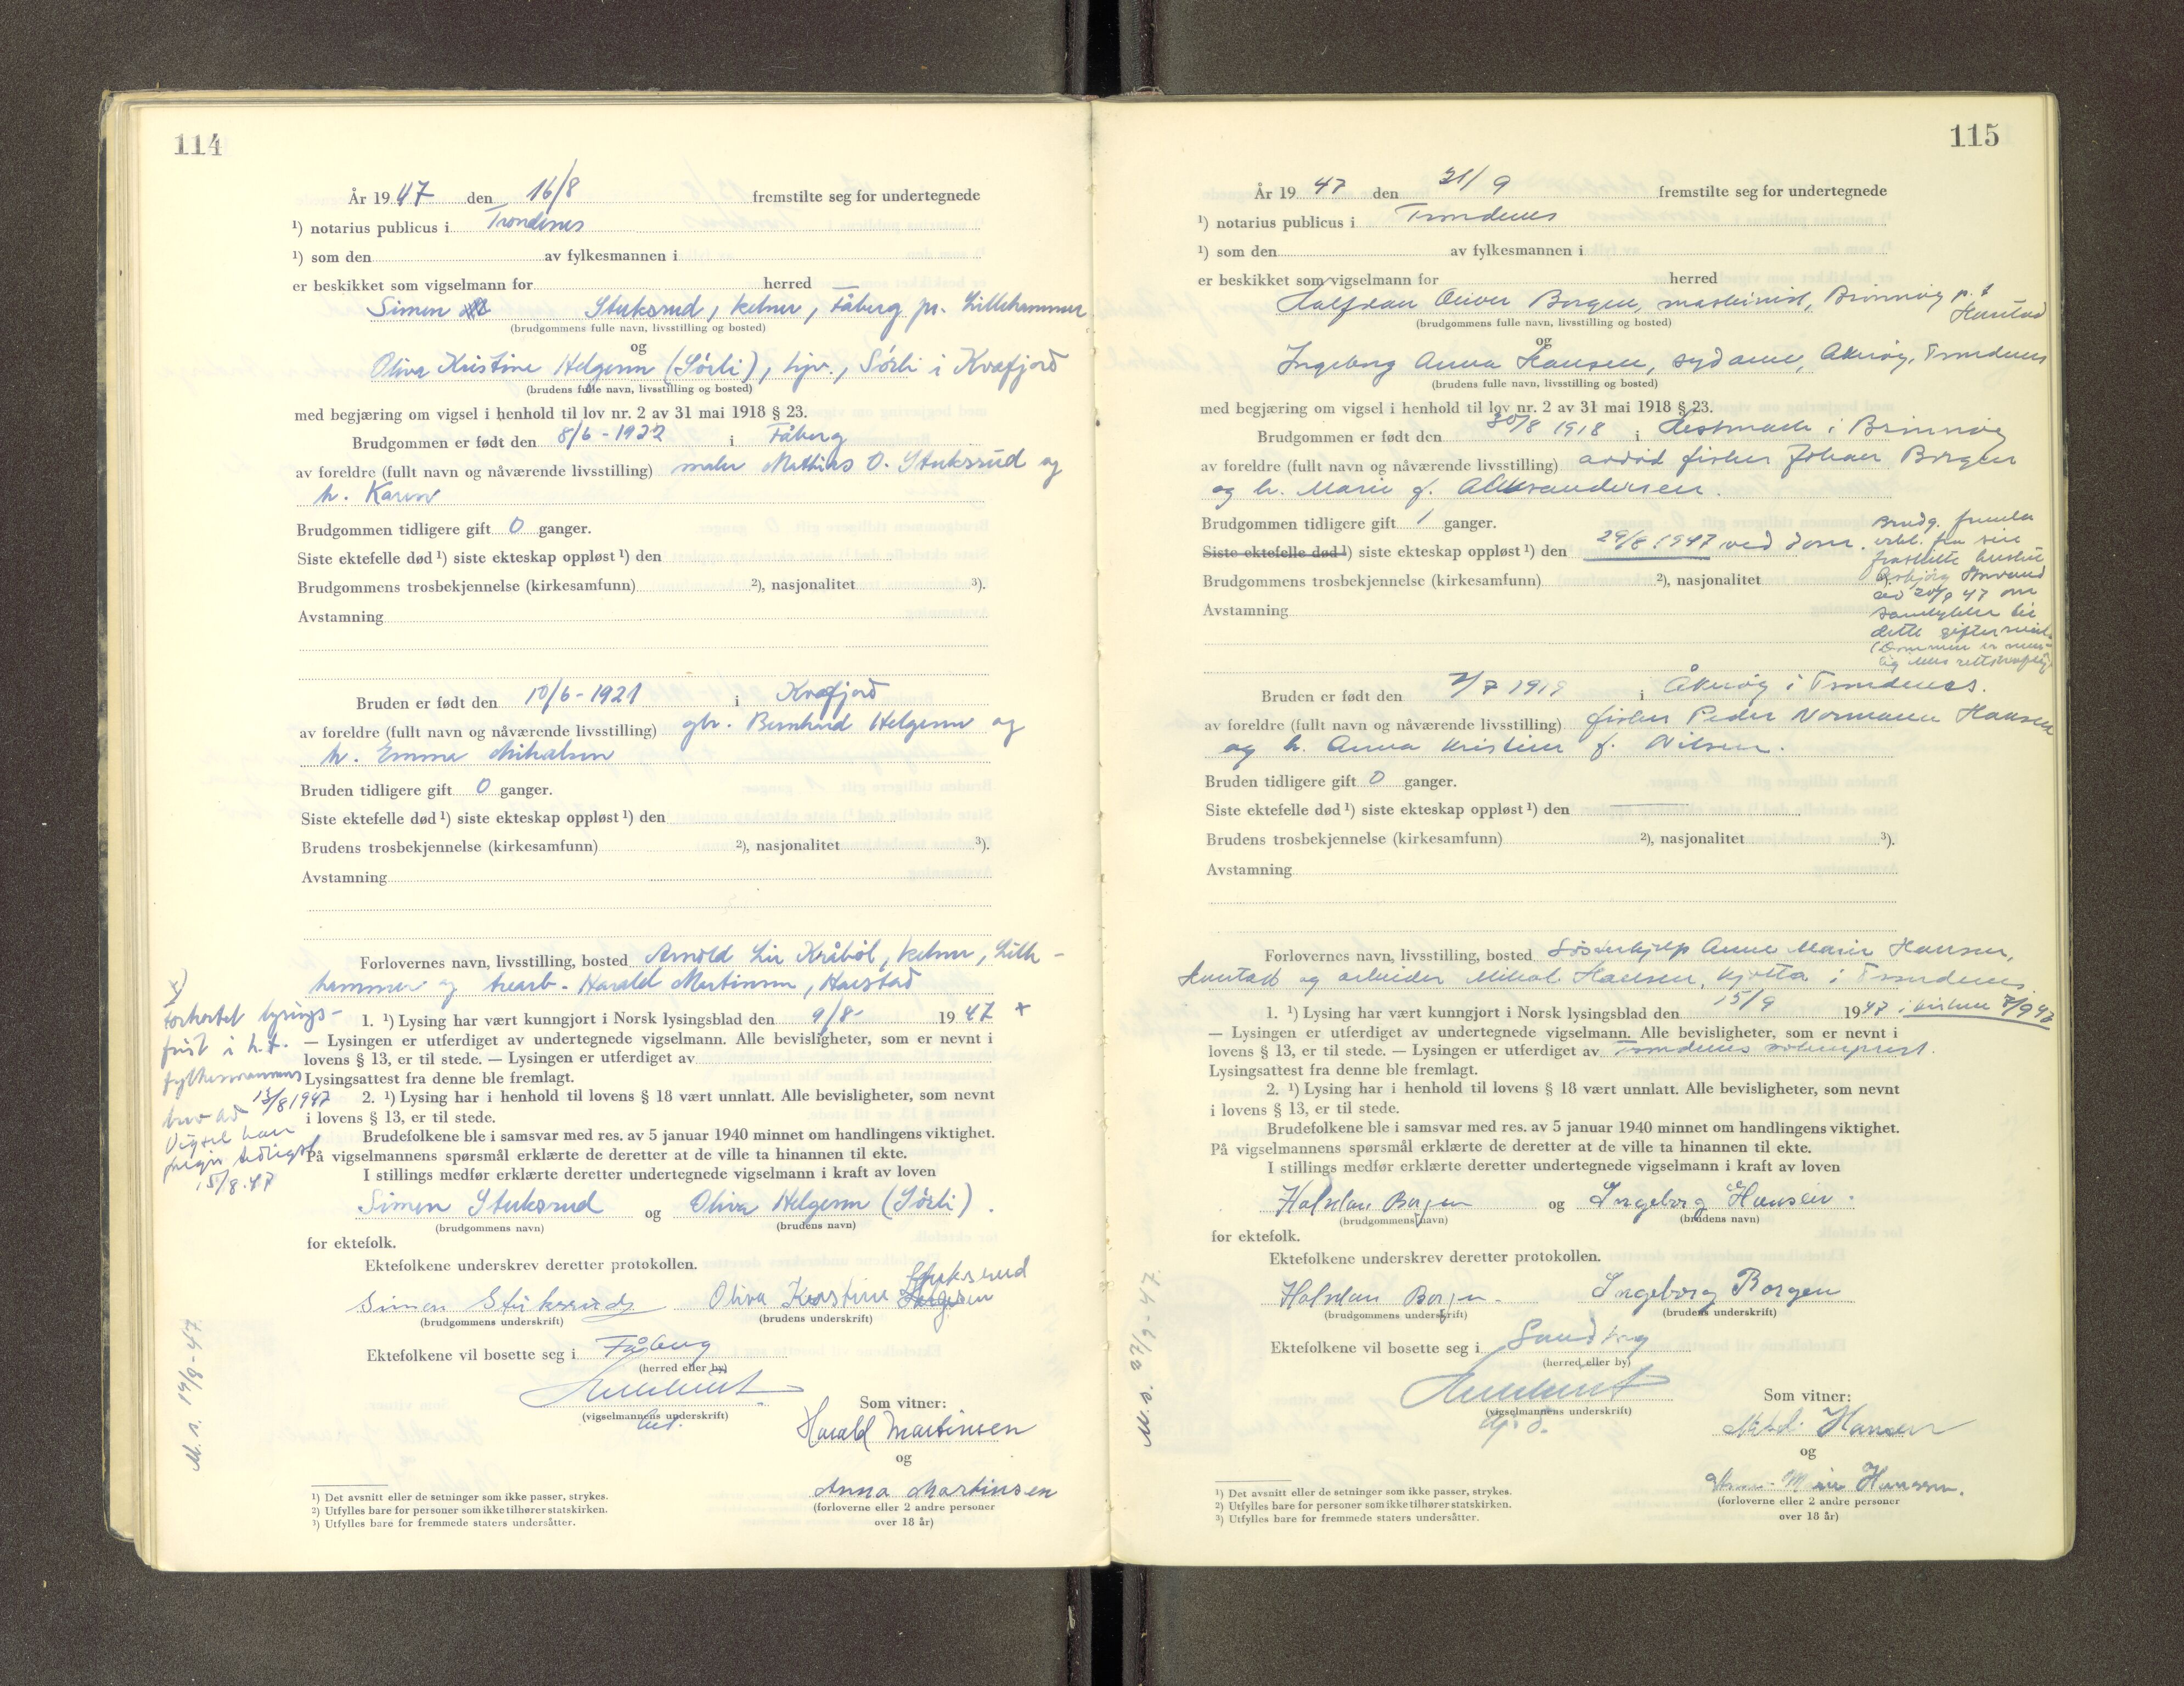 114
År 1947 den 16/8 fremstilte seg for undertegnede
¹) notarius publicus i Trondenes
¹) som den av fylkesmannen i
er beskikket som vigselmann for herred
Simen Stuksrud, kelner, Fåberg pr. Lillehammer
(brudgommens fulle navn, livsstilling og bosted)
og
Oliva Kristine Helgesen (Sørli), hjv., Sørli i Kvæfjord
(brudens fulle navn, livsstilling og bosted)
med begjæring om vigsel i henhold til lov nr. 2 av 31 mai 1918 § 23.
Brudgommen er født den 8/6-1922 i Fåberg
av foreldre (fullt navn og nåværende livsstilling) maler Mathias O. Stuksrud og
h. Karen
Brudgommen tidligere gift 0 ganger.
Siste ektefelle død ¹) siste ekteskap oppløst ¹) den
Brudgommens trosbekjennelse (kirkesamfunn) ²), nasjonalitet ³).
Avstamning
Bruden er født den 10/6-1921 i Kvæfjord
av foreldre (fullt navn og nåværende livsstilling) gbr. Bernhard Helgesen og
h. Emma Mikalsen
Bruden tidligere gift 0 ganger.
Siste ektefelle død ¹) siste ekteskap oppløst ¹) den
Brudens trosbekjennelse (kirkesamfunn) ²), nasjonalitet ³).
Avstamning
Forlovernes navn, livsstilling, bosted Arnold Lie Kråbøl, kelner, Lille-
hammer og trearb. Harald Martinsen, Harstad
1. ¹) Lysing har vært kunngjort i Norsk lysingsblad den 9/8- 1947 x
— Lysingen er utferdiget av undertegnede vigselmann. Alle bevisligheter, som er nevnt i
lovens § 13, er til stede. — Lysingen er utferdiget av
Lysingsattest fra denne ble fremlagt.
2. ¹) Lysing har i henhold til lovens § 18 vært unnlatt. Alle bevisligheter, som nevnt
i lovens § 13, er til stede.
Brudefolkene ble i samsvar med res. av 5 januar 1940 minnet om handlingens viktighet.
På vigselmannens spørsmål erklærte de deretter at de ville ta hinannen til ekte.
I stillings medfør erklærte deretter undertegnede vigselmann i kraft av loven
Simen Stuksrud og Oliva Helgesen (Sørli).
(brudgommens navn) (brudens navn)
for ektefolk.
Ektefolkene underskrev deretter protokollen.
Stuksrud
Simen Stuksrud Oliva Kristine Helgesen
(brudgommens underskrift) (brudens underskrift)
Ektefolkene vil bosette seg i Fåberg
(herred eller by)
(vigselmannens underskrift)
Som vitner:
Harald Martinsen
og
Anna Martinsen
(forloverne eller 2 andre personer
over 18 år)
¹) Det avsnitt eller de setninger som ikke passer, strykes.
²) Utfylles bare for personer som ikke tilhører statskirken.
³) Utfylles bare for fremmede staters undersåtter.
x)
Forkortet lysings-
frist i h.t.
fylkesmannens
brev av 13/8 1947
Vigsel kan
foregå tidligst
15/8.47
M.s. 19/8-47
115
År 1947 den 21/9 fremstilte seg for undertegnede
¹) notarius publicus i Trondenes
¹) som den av fylkesmannen i
er beskikket som vigselmann for herred
Halfdan Oliver Borgen, maskinist, Brønnøy p.t.
Harstad
(brudgommens fulle navn, livsstilling og bosted)
og
Ingeborg Anna Hansen, sydame, Akerøy, Trondenes
(brudens fulle navn, livsstilling og bosted)
med begjæring om vigsel i henhold til lov nr. 2 av 31 mai 1918 § 23.
Brudgommen er født den 30/8 1918 i Hestmark i Brønnøy
av foreldre (fullt navn og nåværende livsstilling) avdød fisker Johan Borgen
og h. Marie f. Aleksandersen.
Brudgommen tidligere gift 1 ganger.
Siste ektefelle død ¹) siste ekteskap oppløst ¹) den 29/8 1947 ved dom.
Brudgommens trosbekjennelse (kirkesamfunn) ²), nasjonalitet ³).
Avstamning
Brudg. fremla
erkl. fra sin
fraskilte hustru
av 20/9 47 om
samtykke til
dette giftermål.
Bruden er født den 2/7 1919 i Åkerøy i Trondenes.
av foreldre (fullt navn og nåværende livsstilling) fisker Peder Normann Hansen
og h. Anna Kristine f. Nilsen.
Bruden tidligere gift 0 ganger.
Siste ektefelle død ¹) siste ekteskap oppløst ¹) den
Brudens trosbekjennelse (kirkesamfunn) ²), nasjonalitet ³).
Avstamning
Forlovernes navn, livsstilling, bosted Søsterhjelp Anne Marie Hansen,
Harstad og arbeider Mikal Hansen, Kjøtta i Trondenes
1. ¹) Lysing har vært kunngjort i Norsk lysingsblad den 15/9 1947 i kirken 7/9 47
— Lysingen er utferdiget av undertegnede vigselmann. Alle bevisligheter, som er nevnt i
lovens § 13, er til stede. — Lysingen er utferdiget av Trondenes sokneprest.
Lysingsattest fra denne ble fremlagt.
2. ¹) Lysing har i henhold til lovens § 18 vært unnlatt. Alle bevisligheter, som nevnt
i lovens § 13, er til stede.
Brudefolkene ble i samsvar med res. av 5 januar 1940 minnet om handlingens viktighet.
På vigselmannens spørsmål erklærte de deretter at de ville ta hinannen til ekte.
I stillings medfør erklærte deretter undertegnede vigselmann i kraft av loven
Halfdan Borgen og Ingeborg Hansen.
(brudgommens navn) (brudens navn)
for ektefolk.
Ektefolkene underskrev deretter protokollen.
Halfdan Borgen. Ingeborg Borgen
(brudgommens underskrift) (brudens underskrift)
Ektefolkene vil bosette seg i Sandtorg
(herred eller by)
(vigselmannens underskrift)
Som vitner:
Mikal Hansen
og
Anne-Marie Hansen.
(forloverne eller 2 andre personer
over 18 år)
¹) Det avsnitt eller de setninger som ikke passer, strykes.
²) Utfylles bare for personer som ikke tilhører statskirken.
³) Utfylles bare for fremmede staters undersåtter.
M.s. 27/9-47.